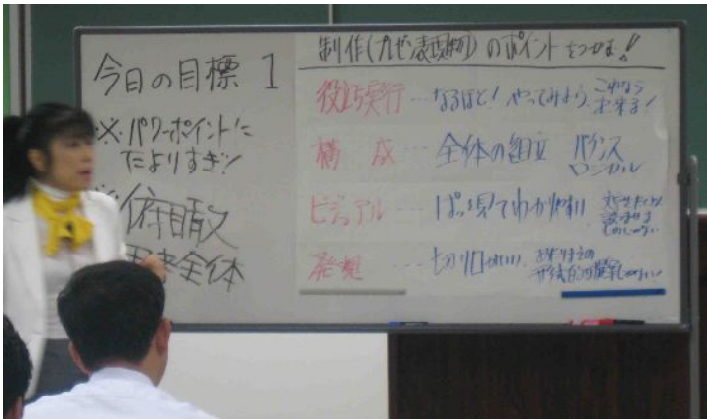 今日の目標 1
※パワーポイントに
たよりすぎ!
※俯瞰
思考全体
制作(プレゼ表現物)のポイントをつかむ!!
役立ち実行…なるほど! やってみよう これなら
出来る!
構成 … 全体の組立 バランス
ロジカル
ビジュアル … ぱっ見てわかりやすい
読ませる
ものじゃない
発想 … 切り口